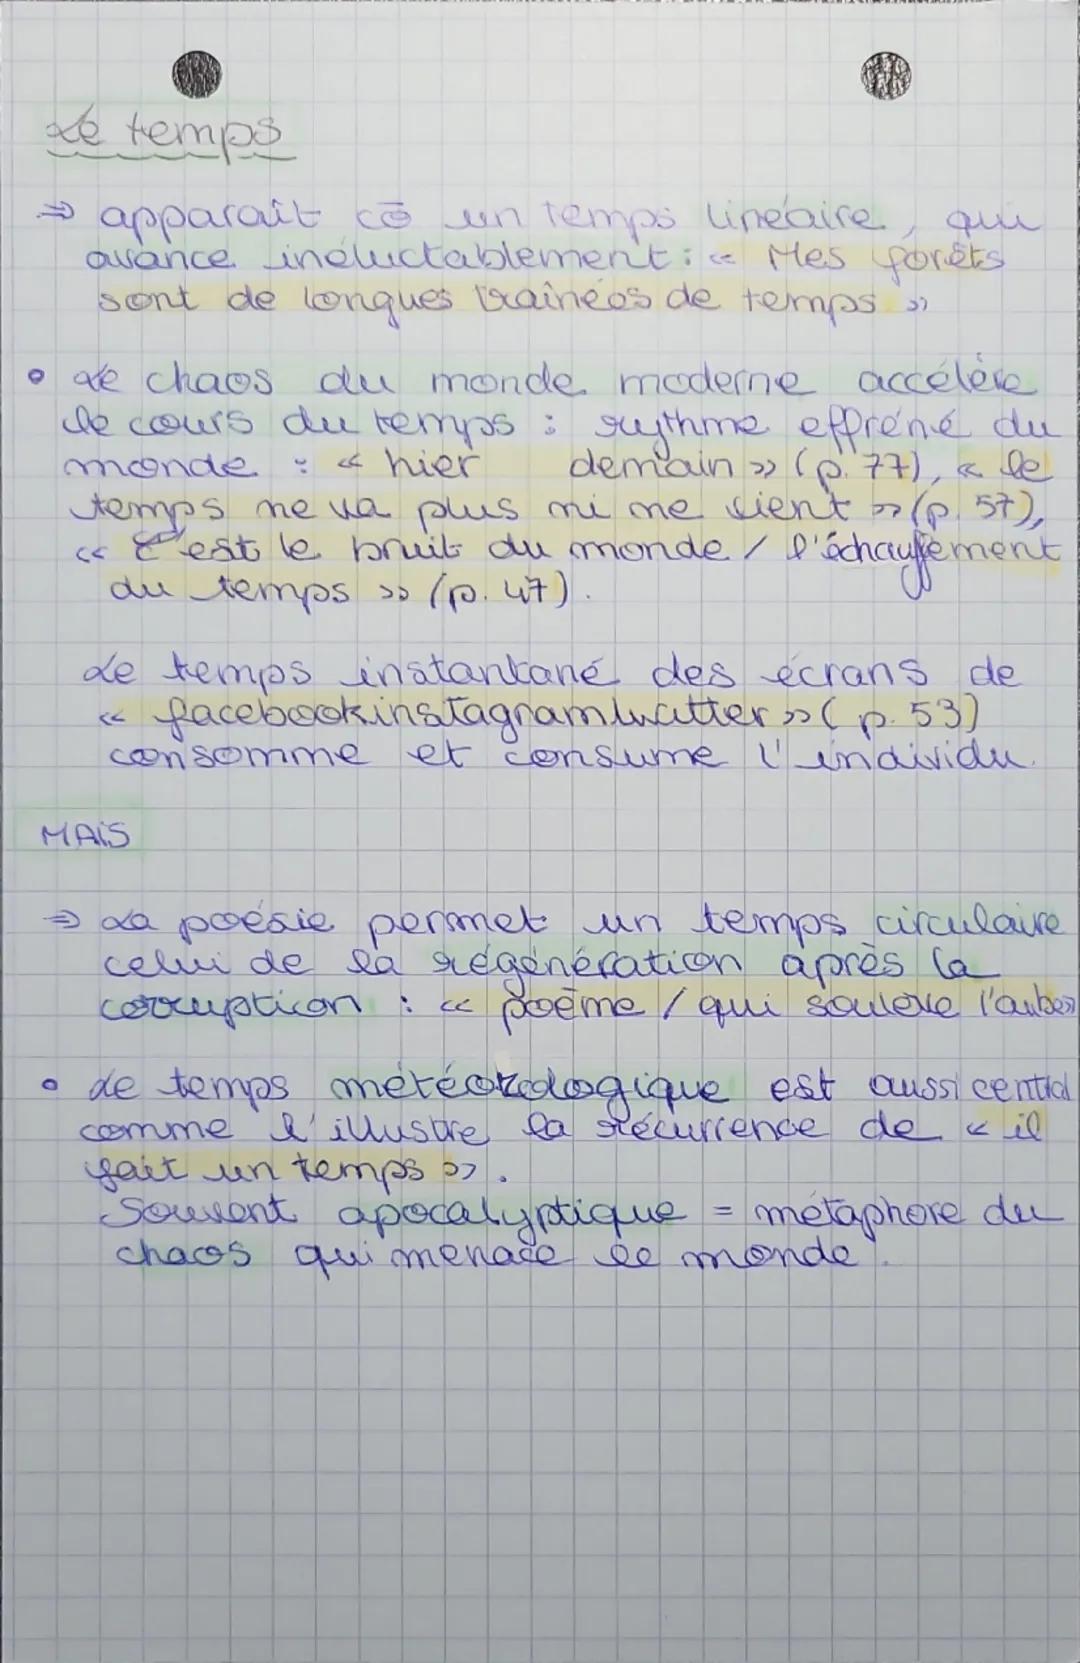 Le temps
⇒ apparaît cō un temps linéaire, qui
avance inéluctablement : « Mes forêts
sont de longues trainées de temps »
• Le chaos du monde moderne accélère
le cours du temps : rythme effréné du
monde : « hier demain » (p. 77), « le
temps ne va plus ni ne vient » (p. 57),
« C'est le bruit du monde / l'échauffement
du temps » (p. 47).
Le temps instantané des écrans de
« facebookinstagramtwitter » (p. 53)
consomme et consume l'individu.
MAIS
⇒ La poésie permet un temps circulaire
celui de la régénération après la
corruption : « poème / qui soulève l'aube »
• Le temps météorologique est aussi central
comme l'illustre la récurrence de « il
fait un temps ».
Souvent apocalyptique = métaphore du
chaos qui menace le monde.